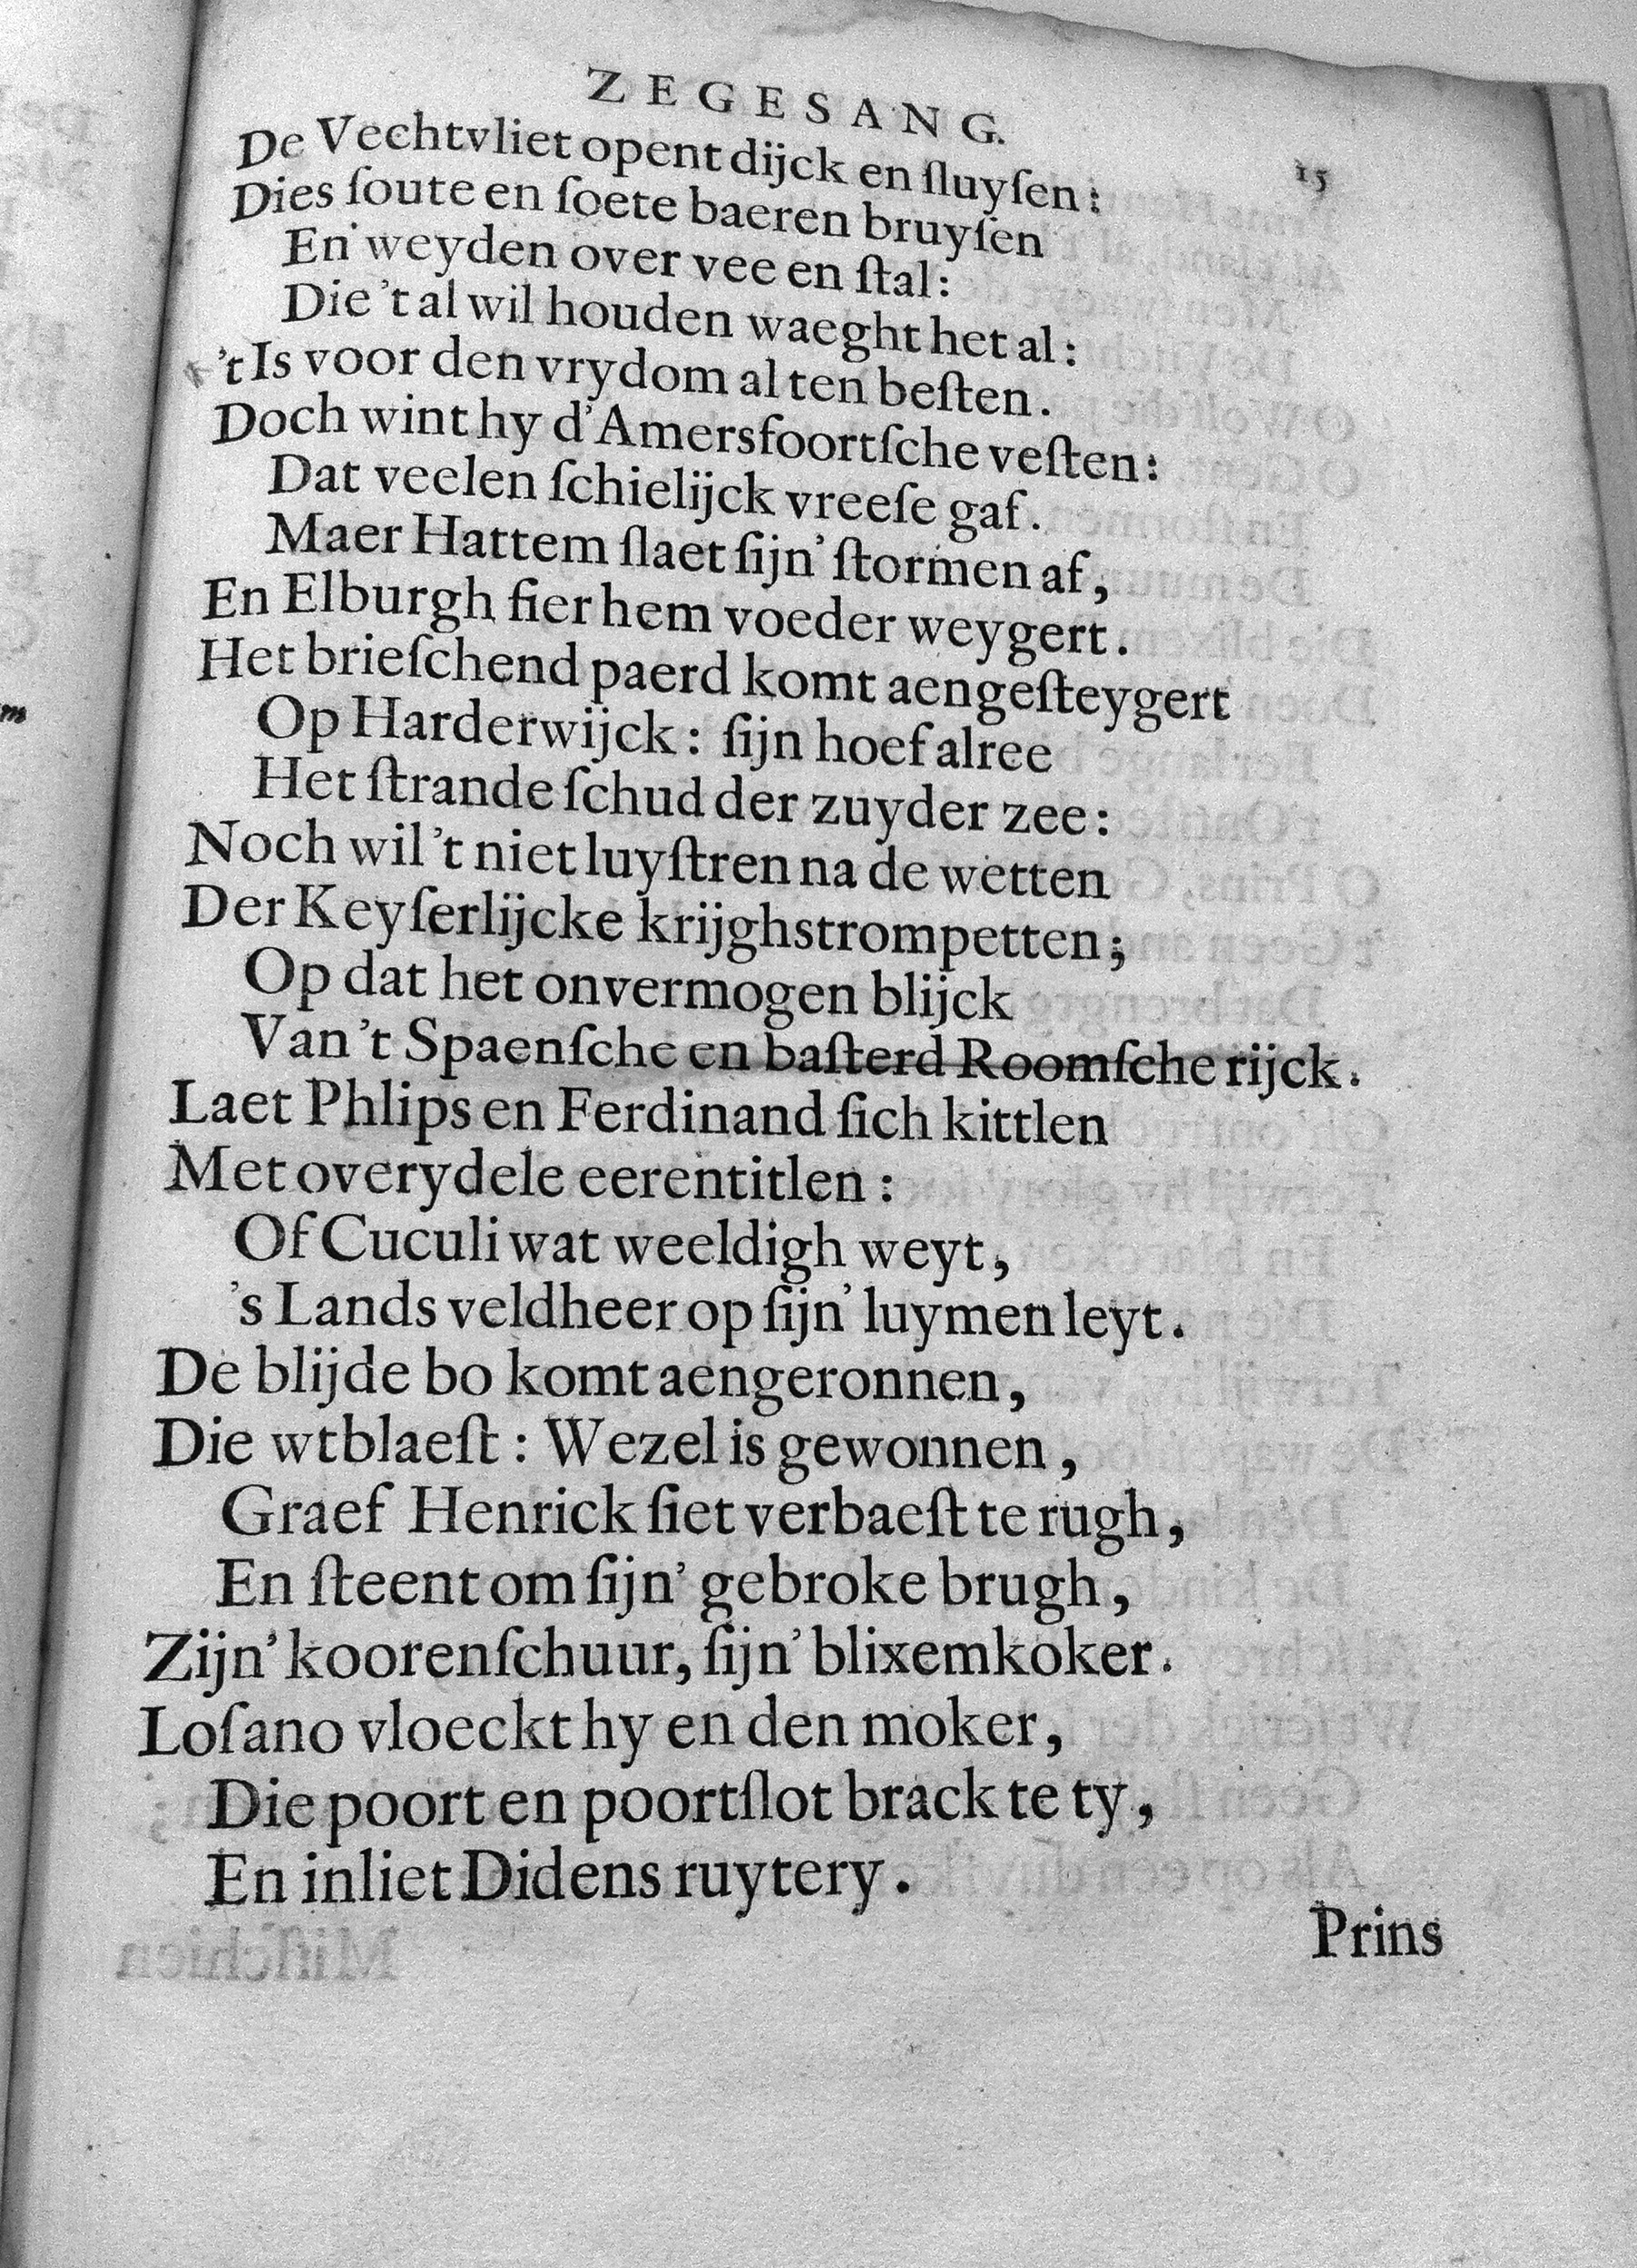 ZEGESANG.
15
De Vechtvliet opent dijck en ſluyſen:
Dies ſoute en ſoete baeren bruyſen
En weyden over vee en ſtal:
Die 't al wil houden waeght het al:
't Is voor den vrydom al ten beſten.
Doch wint hy d'Amersfoortſche veſten:
Dat veelen ſchielijck vreeſe gaf.
Maer Hattem ſlaet ſijn' ſtormen af,
En Elburgh fier hem voeder weygert.
Het brieſchend paerd komt aengeſteygert
Op Harderwijck: ſijn hoef alree
Het ſtrande ſchud der zuyder zee:
Noch wil 't niet luyſtren na de wetten
Der Keyſerlijcke krijghstrompetten;
Op dat het onvermogen blijck
Van 't Spaenſche en baſterd Roomſche rijck.
Laet Phlips en Ferdinand ſich kittlen
Met overydele eerentitlen:
Of Cuculi wat weeldigh weyt,
's Lands veldheer op ſijn' luymen leyt.
De blijde bo komt aengeronnen,
Die wtblaeſt: Wezel is gewonnen,
Graef Henrick ſiet verbaeſt te rugh,
En ſteent om ſijn' gebroke brugh,
Zijn' koorenſchuur, ſijn' blixemkoker.
Loſano vloeckt hy en den moker,
Die poort en poortſlot brack te ty,
En inliet Didens ruytery.
Prins